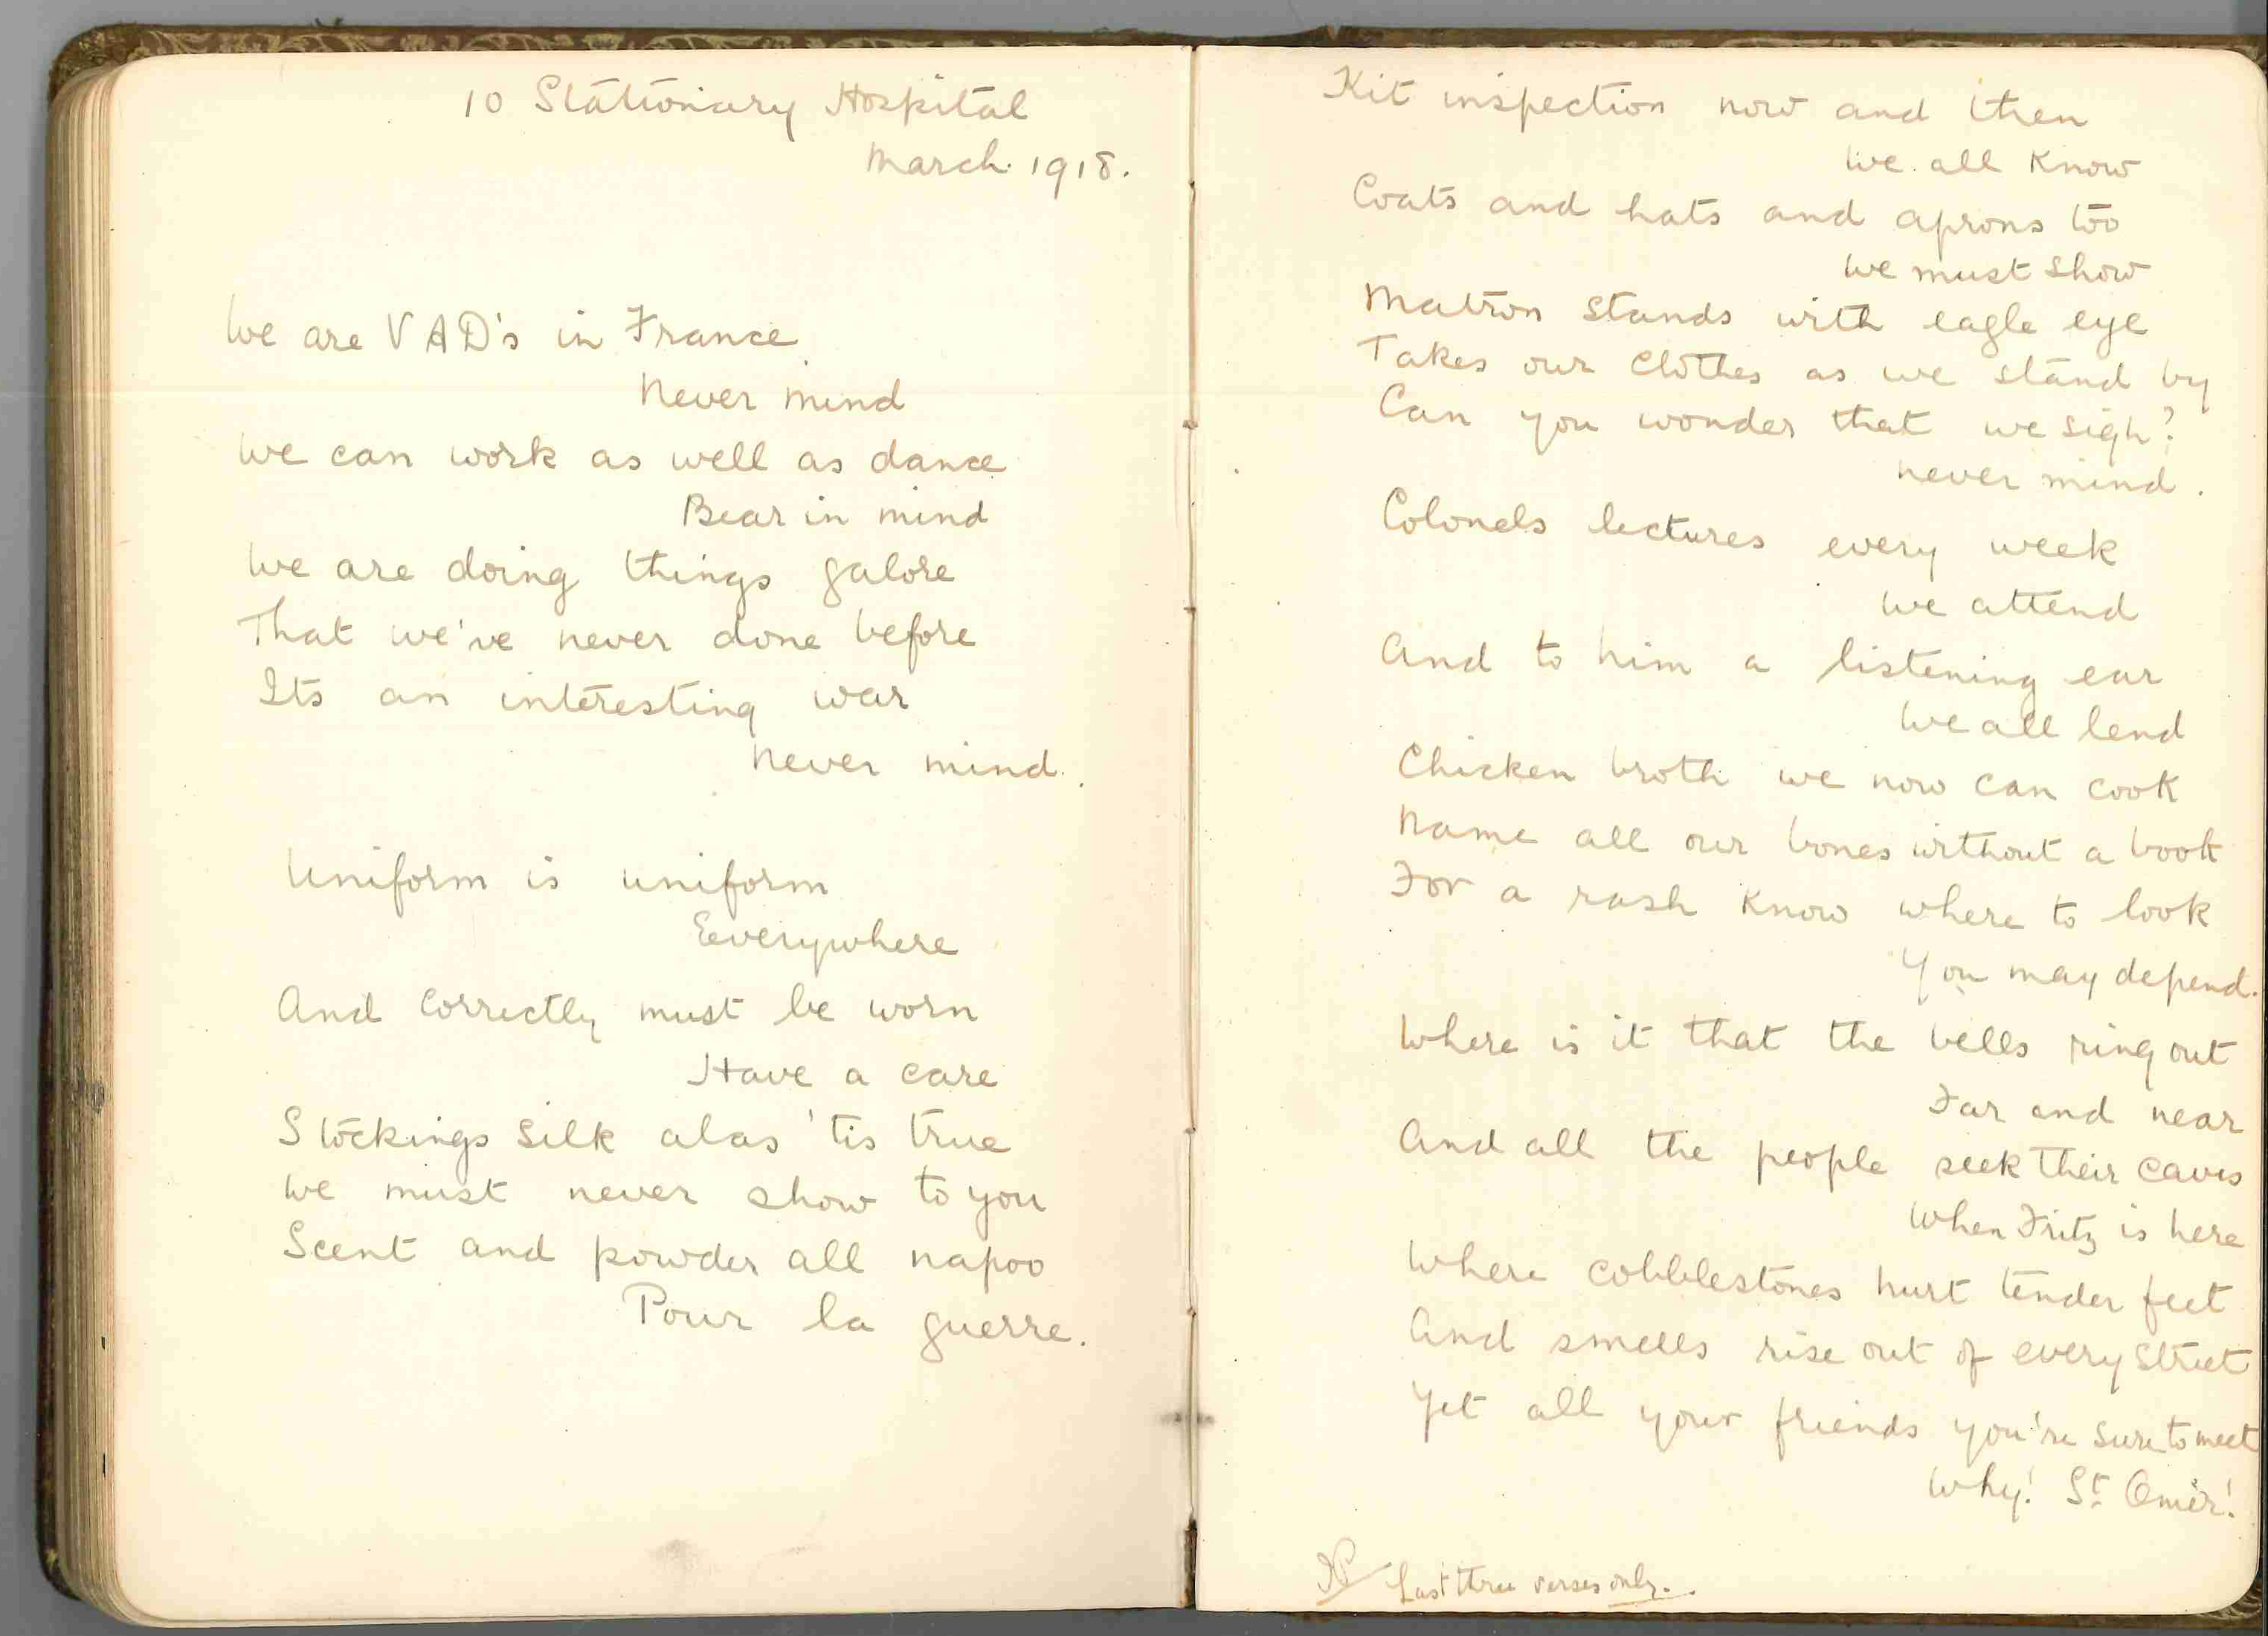 10 Stationary Hospital
March. 1918.
We are VAD's in France
Never mind
We can work as well as dance
Bear in mind
We are doing things galore
That we've never done before
Its an interesting war
Never mind.
Uniform is uniform
Everywhere
And correctly must be worn
Have a care
Stockings silk alas 'tis true
We must never show to you
Scent and powder all napoo
Pour la guerre.
Kit inspection now and then
We all know
Coats and hats and aprons too
We must show
Matron stands with eagle eye
Takes our clothes as we stand by
Can you wonder that we sigh?
never mind.
Colonels lectures every week
We attend
And to him a listening ear
We all lend
Chicken broth we now can cook
Name all our bones without a book
For a rash know where to look
You may depend.
Where is it that the bells ring out
Far and near
And all the people seek their caves
When Fritz is here
Where cobblestones hurt tender feet
And smells rise out of every street
Yet all your friends you're sure to meet
Why! St. Omer!
Last three verses only.